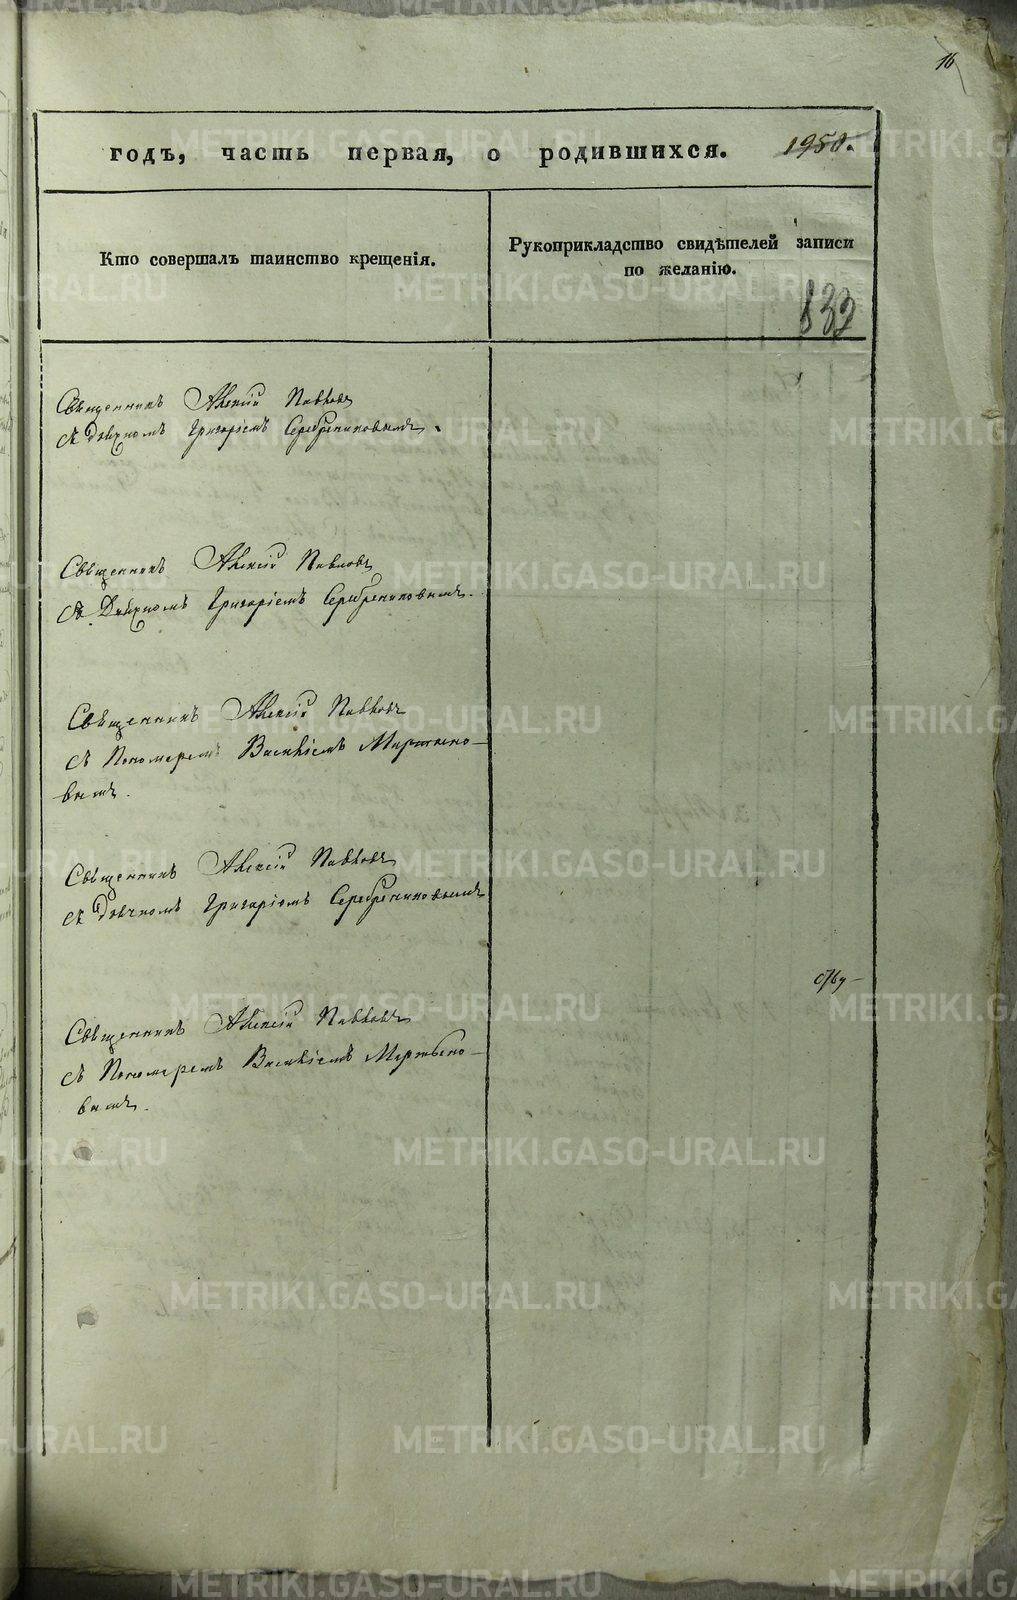 16
годъ, часть первая, о родившихся. 1950.
Кто совершалъ таинство крещенія.
Рукоприкладство свидѣтелей записи
по желанію.
832
Священникъ Алексій Павловъ
съ дьячкомъ Григоріемъ Серебрениковымъ.
Священникъ Алексій Павловъ
съ Дьячкомъ Григоріемъ Серебрениковымъ.
Священникъ Алексій Павловъ
съ Пономаремъ Василіемъ Мартыно-
вымъ.
Священникъ Алексій Павловъ
съ дьячкомъ Григоріемъ Серебрениковымъ
Священникъ Алексій Павловъ
съ Пономаремъ Василіемъ Мартыно-
вымъ.
METRIKI.GASO-URAL.RU